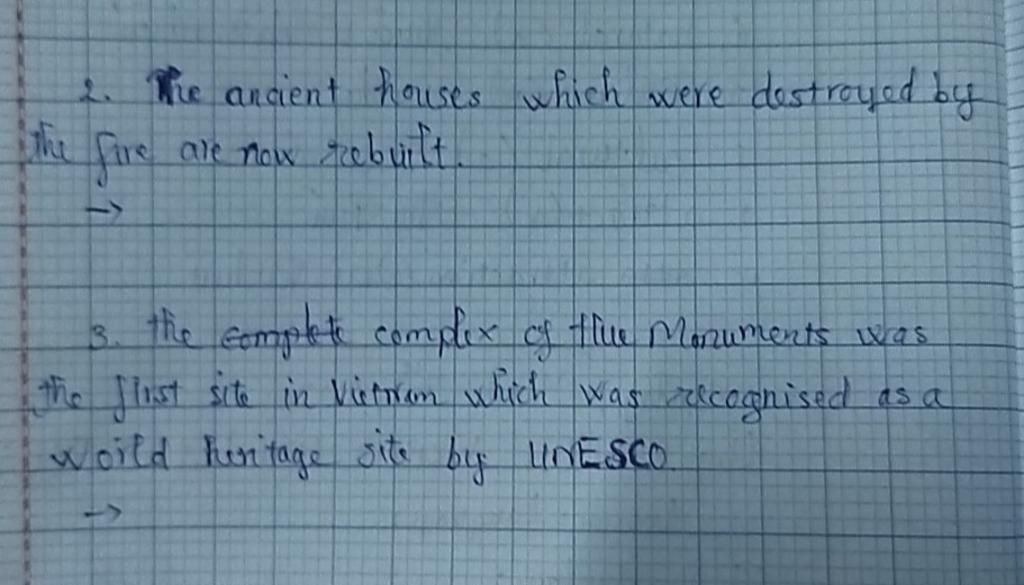 2. The ancient houses which were destroyed by
the fire are now rebuilt.
→
3. the complete complex of Hue Monuments was
the first site in Vietnam which was recognised as a
world heritage site by UNESCO
→